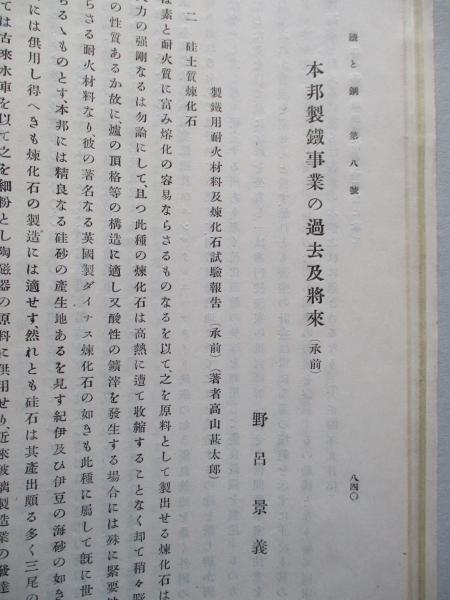 鐵と鋼 第八號
八四〇
本邦製鐵事業の過去及將來(承前)
野呂景義
製鐵用耐火材料及煉化石試驗報告(承前)(著者高山甚太郎)
二 硅土質煉化石
は素と耐火質に富み熔化の容易ならさるものなるを以て、之を原料として製出せる煉化石は
火力の強剛なるは勿論にして、且つ此種の煉化石は高熱に遭て收縮することなく却て稍々膨
の性質あるか故に、爐の頂格等の構造に適し又酸性の鑛滓を發生する場合には殊に緊要
らさる耐火材料なり彼の著名なる英國製ダイナス煉化石の如きも此種に屬して既に世
らるゝものとす、本邦には精良なる硅砂の產生地あるを見す紀伊及ひ伊豆の海砂の如き
には供用し得へきも煉化石の製造には適せす、然れとも硅石は其產出頗る多く三尾の
ては古來水車を以て之を細粉とし陶磁器の原料に供用せり、近來玻璃製造業の發達